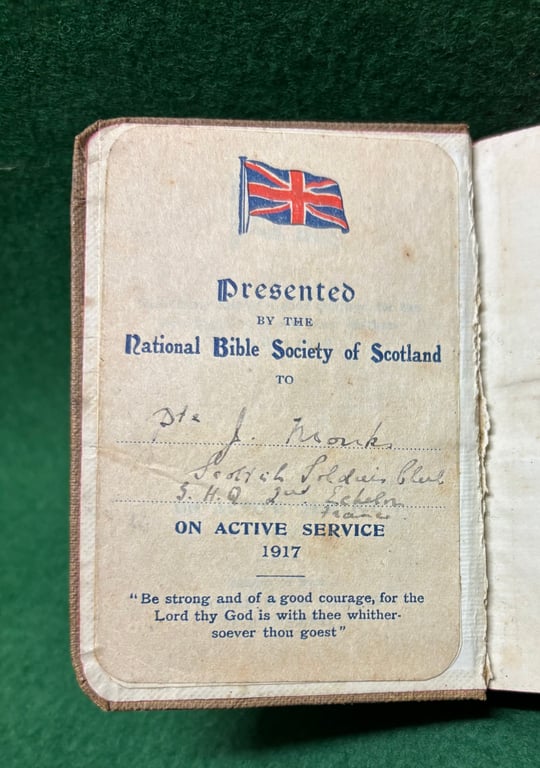 Presented
BY THE
National Bible Society of Scotland
TO
Pte J. Monks
Scottish Soldiers Club
G. H. Q 2nd. Echelon
France
ON ACTIVE SERVICE
1917
"Be strong and of a good courage, for the
Lord thy God is with thee whither-
soever thou goest"